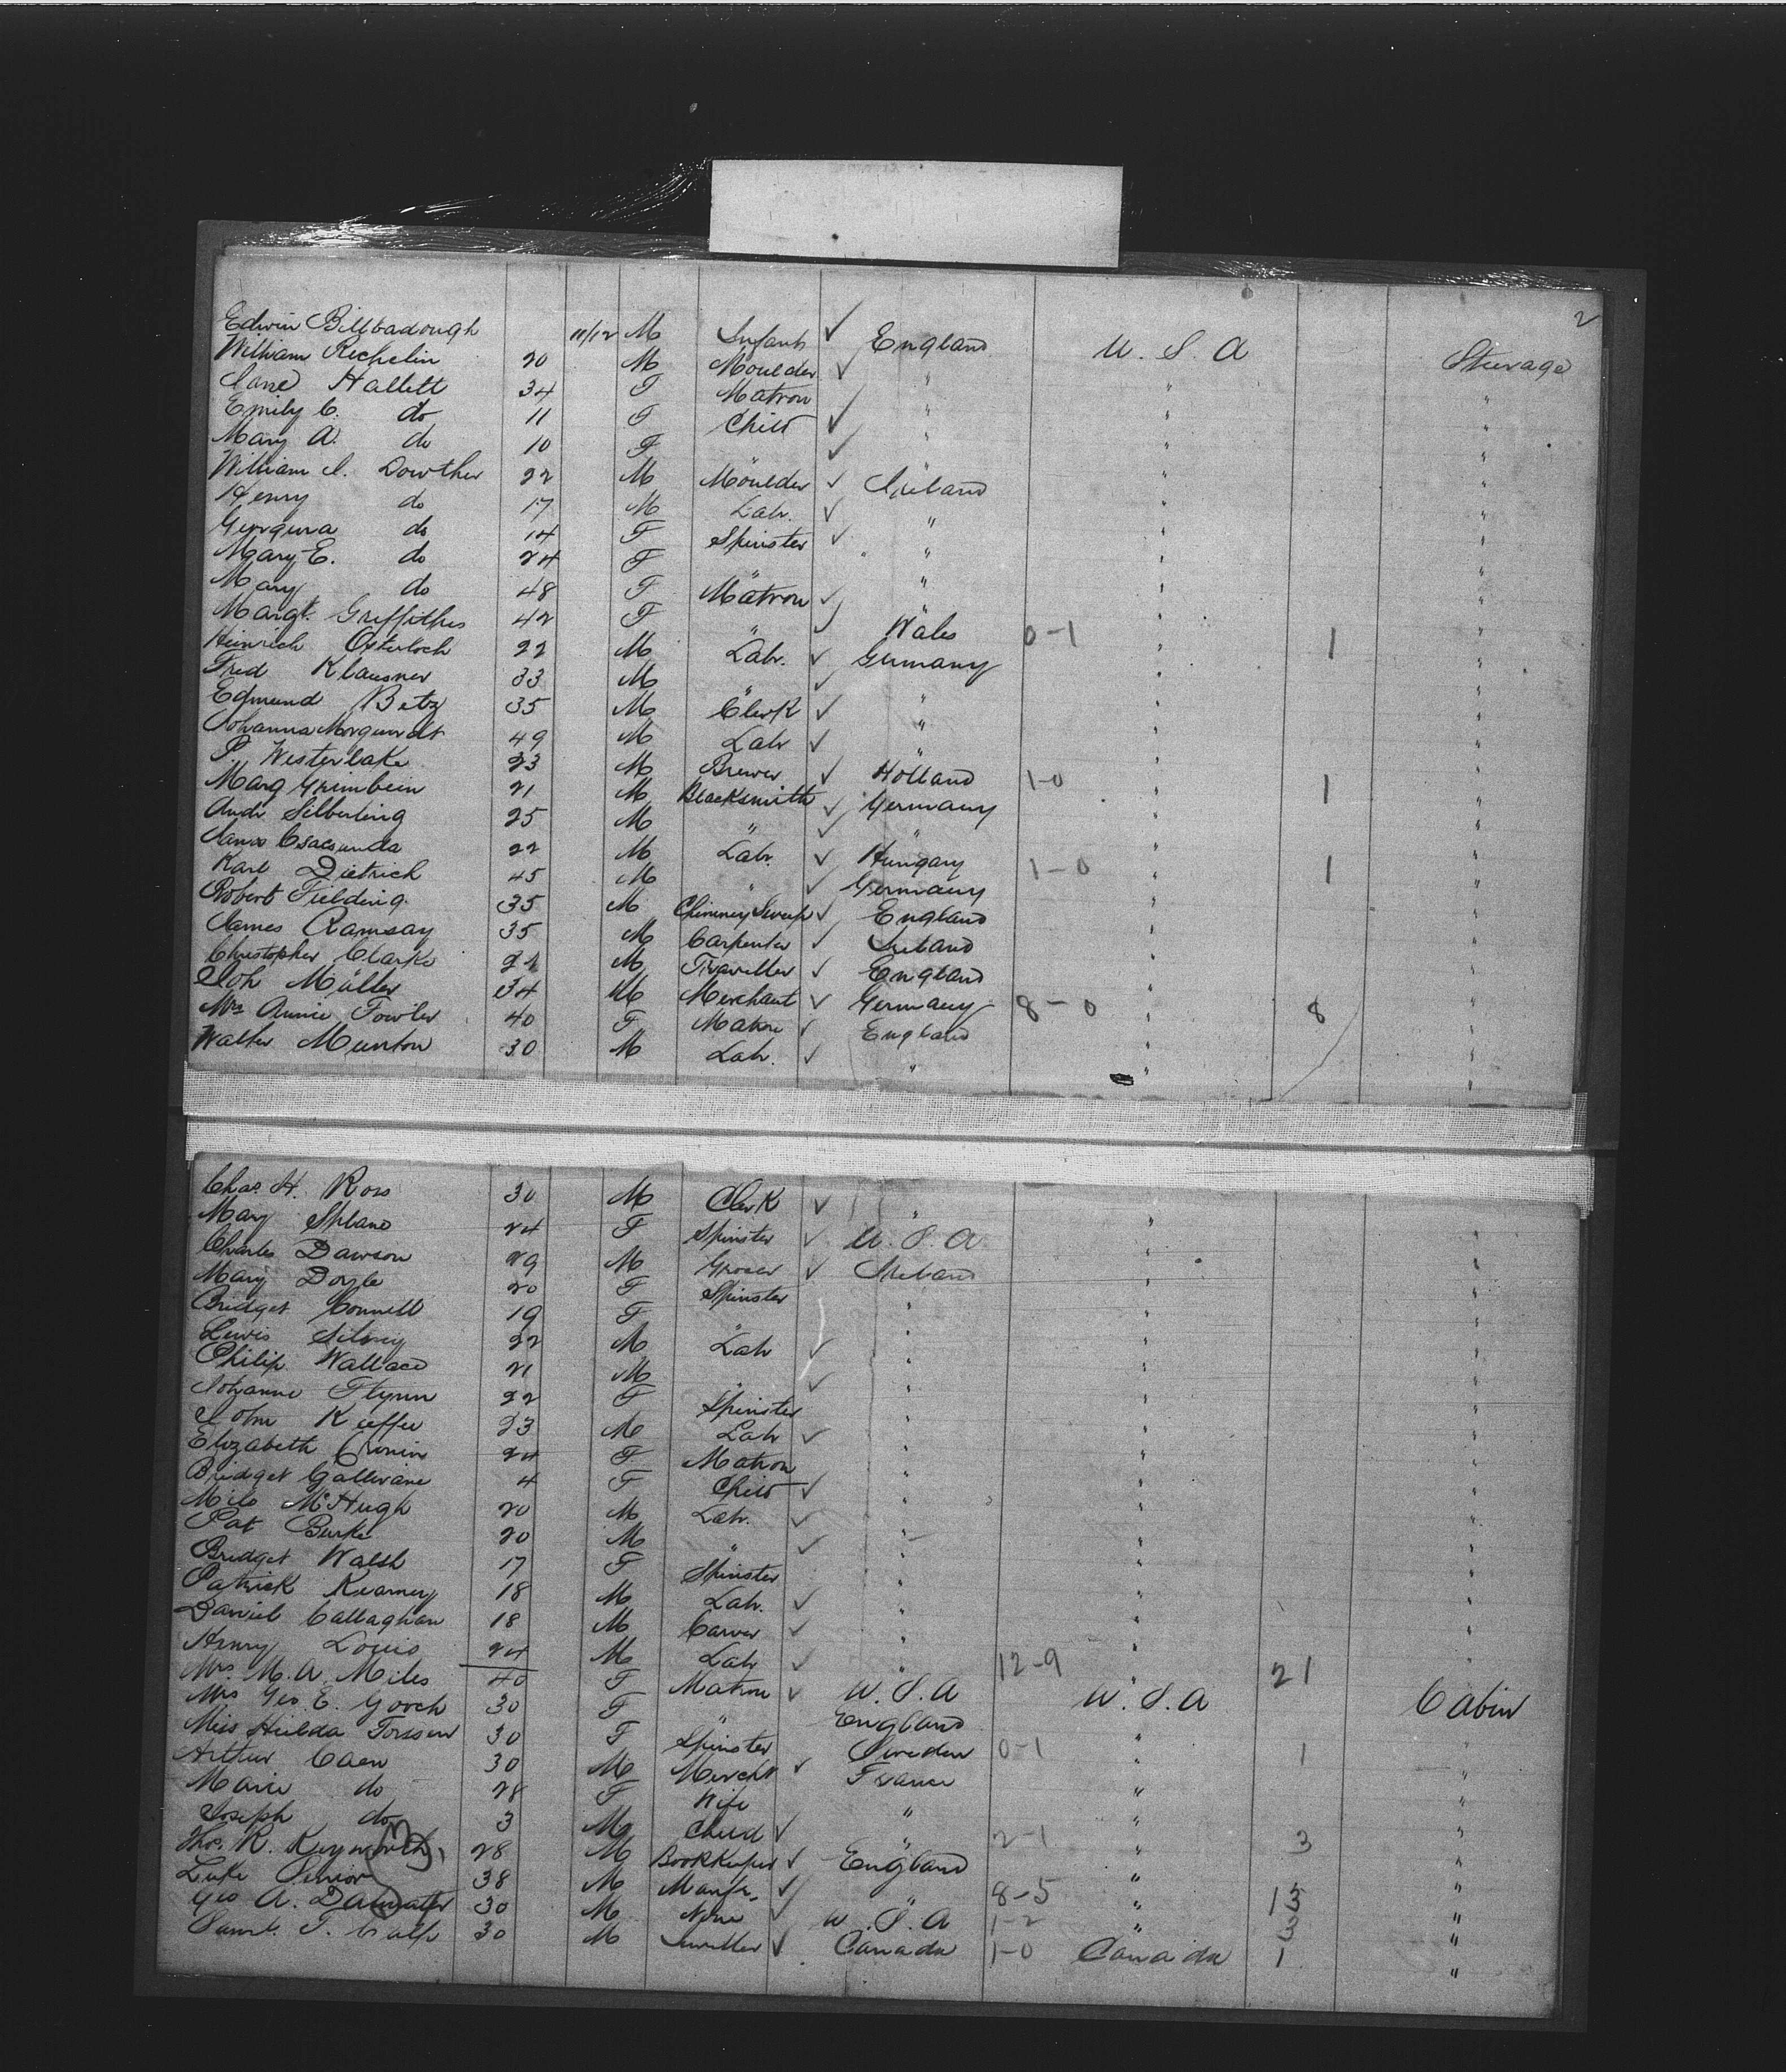 2
Edwin Billbadough 11/12 M Infant ✓ England U. S. A Steerage
William Richelin 20 M Moulder ✓ " " "
Jane Hallett 34 F Matron " " "
Emily C. do 11 F Child ✓ " " "
Mary A. do 10 F " ✓ " " "
William J. Dowther 22 M Moulder ✓ Ireland " "
Henry do 17 M Labr. ✓ " " "
Georgina do 14 F Spinster ✓ " " "
Mary E. do 24 F " " " "
Mary do 48 F Matron ✓ " " "
Margt. Griffiths 42 F " ✓ Wales 0-1 " 1 "
Heinrich Osterloch 22 M Labr. ✓ Germany " "
Fred Klausner 33 M " ✓ " " "
Edmund Betz 35 M Clerk ✓ " " "
49 M Labr ✓ " " "
P. Westerlake 23 M Brewer ✓ Holland 1-0 " 1 "
Marg Grimbein 21 M Blacksmith ✓ Germany " "
Andr Silberling 25 M " ✓ " " "
22 M Labr. ✓ Hungary 1-0 " 1 "
Karl Dietrich 45 M " ✓ Germany " "
Robert Fielding 35 M Chimney Sweep ✓ England " "
James Ramsay 35 M Carpenter ✓ Ireland " "
Christopher Clarke 21 M Traveller ✓ England " "
Joh Müller 34 M Merchant ✓ Germany 8-0 " 8 "
Mrs Annie Fowler 40 F Matron ✓ England " "
Walter Munton 30 M Labr. ✓ " " "
Chas. H. Ross 30 M Clerk ✓ " " "
Mary Splane 24 F Spinster ✓ U. S. A " "
Charles Dawson 29 M Grocer ✓ Ireland " "
Mary Doyle 20 F Spinster " " "
Bridget Connell 19 F " " " "
Lewis 22 M Labr ✓ " " "
Philip Wallace 21 M " ✓ " " "
Johanna Flynn 22 F Spinster " " "
John Kieffe 23 M Labr ✓ " " "
Elizabeth Cronin 24 F Matron " " "
Bridget Gallivane 4 F Child ✓ " " "
Milo McHugh 20 M Labr. ✓ " " "
Pat Burke 20 M " ✓ " " "
Bridget Walsh 17 F Spinster " " "
Patrick Kearney 18 M Labr. ✓ " " "
Daniel Callaghan 18 M Carver ✓ " " "
Henry Louis 24 M Labr ✓ " 12-9 " 21 "
Mrs. M. A. Miles 40 F Matron ✓ U. S. A U. S. A Cabin
Mrs Geo. E. Gorch 30 F " England " "
Miss Hulda Forssen 30 F Spinster Sweden 0-1 " 1 "
Arthur Caen 30 M Mercht ✓ France " "
Marie do 28 F Wife " " "
Joseph do 3 M Child ✓ " 2-1 " 3 "
Thos. R. Keyworth 28 M Bookkeeper ✓ England " "
Luke Senior 38 M Manfr. ✓ " 8-5 " 13 "
Geo A. 30 M None ✓ U. S. A 1-2 " 3 "
Saml. T. Culp 30 M Jeweller ✓ Canada 1-0 Canada 1 "